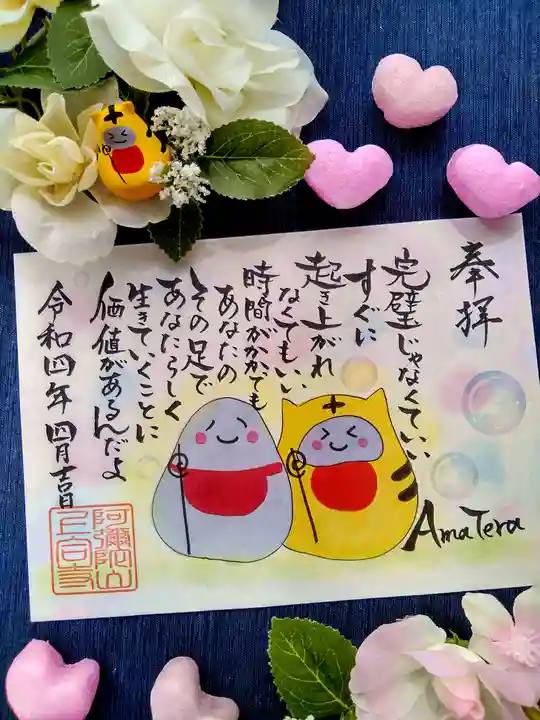 奉拝
完璧じゃなくていい
すぐに
起き上がれ
なくてもいい
時間がかかっても
あなたの
その足で
あなたらしく
生きていくことに
価値があるんだよ
令和四年 四月吉日
AmaTera
阿彌陀山